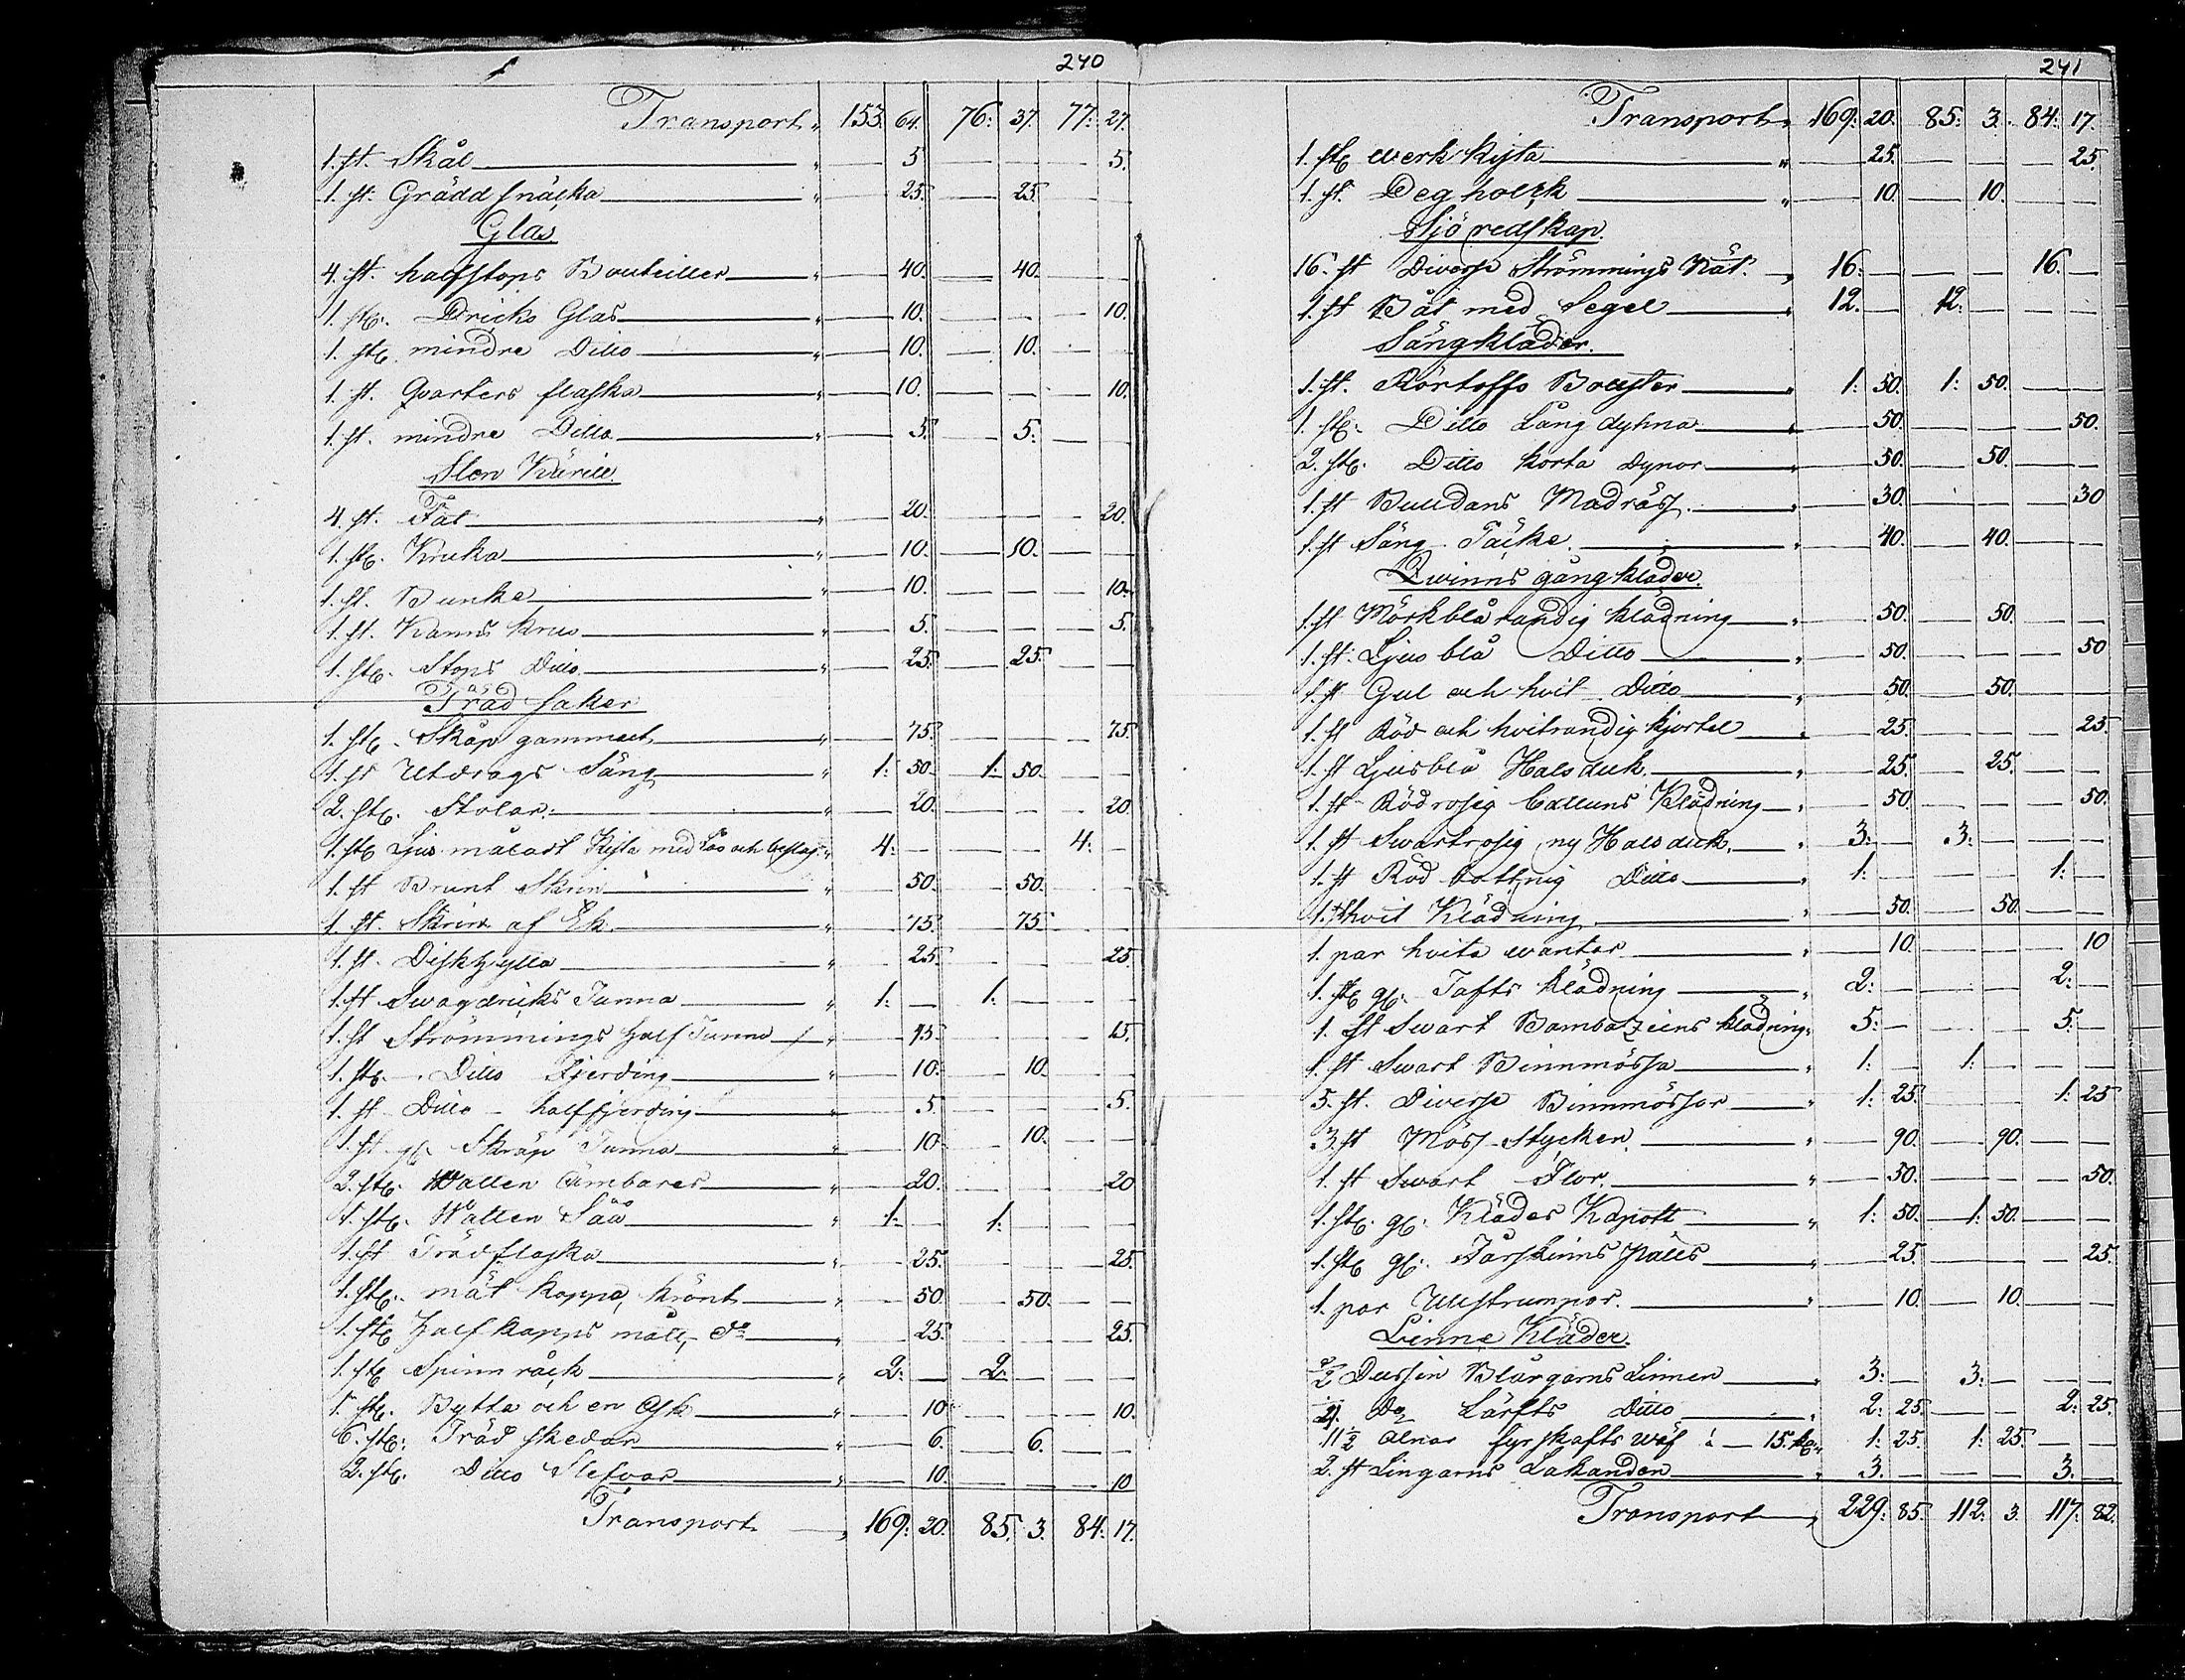 240
Transport " 153. 64. 76: 37. 77: 27.
1. st. Skål " 5 5.
1. st. Gräddsnäcka " 25. 25.
Glas
4. st. halfstops Bouteiller " 40. 40.
1. st. Dricks Glas " 10. 10.
1. st. mindre Ditto " 10. 10.
1. st. Qvarters flaska " 10. 10.
1. st. mindre Ditto " 5. 5.
Sten Kärill
4. st. Fat " 20. 20.
1. st. Kruka " 10. 10.
1. st. Bunke " 10. 10.
1. st. Kanns krus " 5. 5.
1. st. Stops Ditto " 25. 25.
Träd saker
1. st. Skåp gammalt " 75. 75.
1. st Utdrags Säng " 1: 50. 1: 50.
2. st. Stolar " 20. 20
1. st Ljus målart Kista med Lås och beslag " 4: 4:
1. st Brunt Skrin " 50. 50.
1. st. Skrin af Ek " 75. 75.
1. st. Diskhylla " 25. 25.
1. st Swagdricks Tunna " 1: 1:
1. st Strömmings half Tunna " 15. 15.
1. st. Ditto Fjerding " 10. 10.
1. st Ditto half fjerding " 5. 5.
1. st gl. Skräp Tunna " 10 10.
2. st. Watten Ämbarer " 20. 20
1. st. Watten Såå " 1: 1:
1. st Trädflaska " 25. 25.
1. st. mät kappa, krönt " 50. 50.
1. st Half kapps mått, do " 25. 25.
1. st Spinn råck " 2: 2:
1. st. Bytta och en Ask " 10 10.
6. st. Träd skedar " 6. 6.
2. st. Ditto Slefvar " 10. 10
Transport " 169: 20. 85. 3. 84: 17.
241
Transport " 169: 20. 85: 3. 84: 17.
1. st werk kista " 25. 25
1. st. Degholck " 10. 10.
Sjö redskap.
16. st Diverse Strömmings Nät. " 16: 16.
1. st Båt med Segel " 12. 12.
Sängkläder.
1. st. Körtoffs Bouster " 1: 50. 1: 50.
1. st. Ditto Lång dyhna " 50. 50.
2. st. Ditto korta dynor " 50. 50.
1. st Bulldans Madrass. " 30. 30
1. st Säng Täcke. " 40. 40.
Qvinns gångkläder.
1. st Mörkblå randig klädning " 50. 50.
1. st. Ljus blå Ditto " 50. 50
1. st Gul och hvit Ditto " 50. 50.
1. st Röd och hvitrandig kjortel " 25. 25.
1. st Ljusblå Halsduk. " 25. 25.
1. st Rödrosig Cattuns Klädning " 50. 50.
1. st Swartrosig ny Halsduk. " 3: 3:
1. st Röd bottnig Ditto " 1: 1:
1. st hvit Klädning " 50. 50.
1. par hvita wantar " 10. 10
1. st gl. Tafts klädning " 2: 2:
1. st Swart Bambaziens klädning " 5: 5:
1. st Swart Binnmössa " 1: 1:
5. st. Diverse Binnmössor " 1: 25. 1: 25
3. st Möss Stycken. " 90. 90.
1. st Swart Flor. " 50. 50.
1. st. gl. Klädes Kapott " 1: 50. 1: 50.
1. st gl. Fårskinns päls " 25. 25.
1. par Ullstrumpor. " 10. 10.
Linne Kläder.
1/2 Dussin Blårgarns Linnen " 3: 3:
Do Lärfts Ditto " 2: 25. 2: 25.
11 1/2 Alnar fyrskafts wäf à 15. " 1: 25. 1: 25.
2. st Lingarns Lakanden " 3. 3.
Transport " 229: 85. 112: 3. 117: 82.